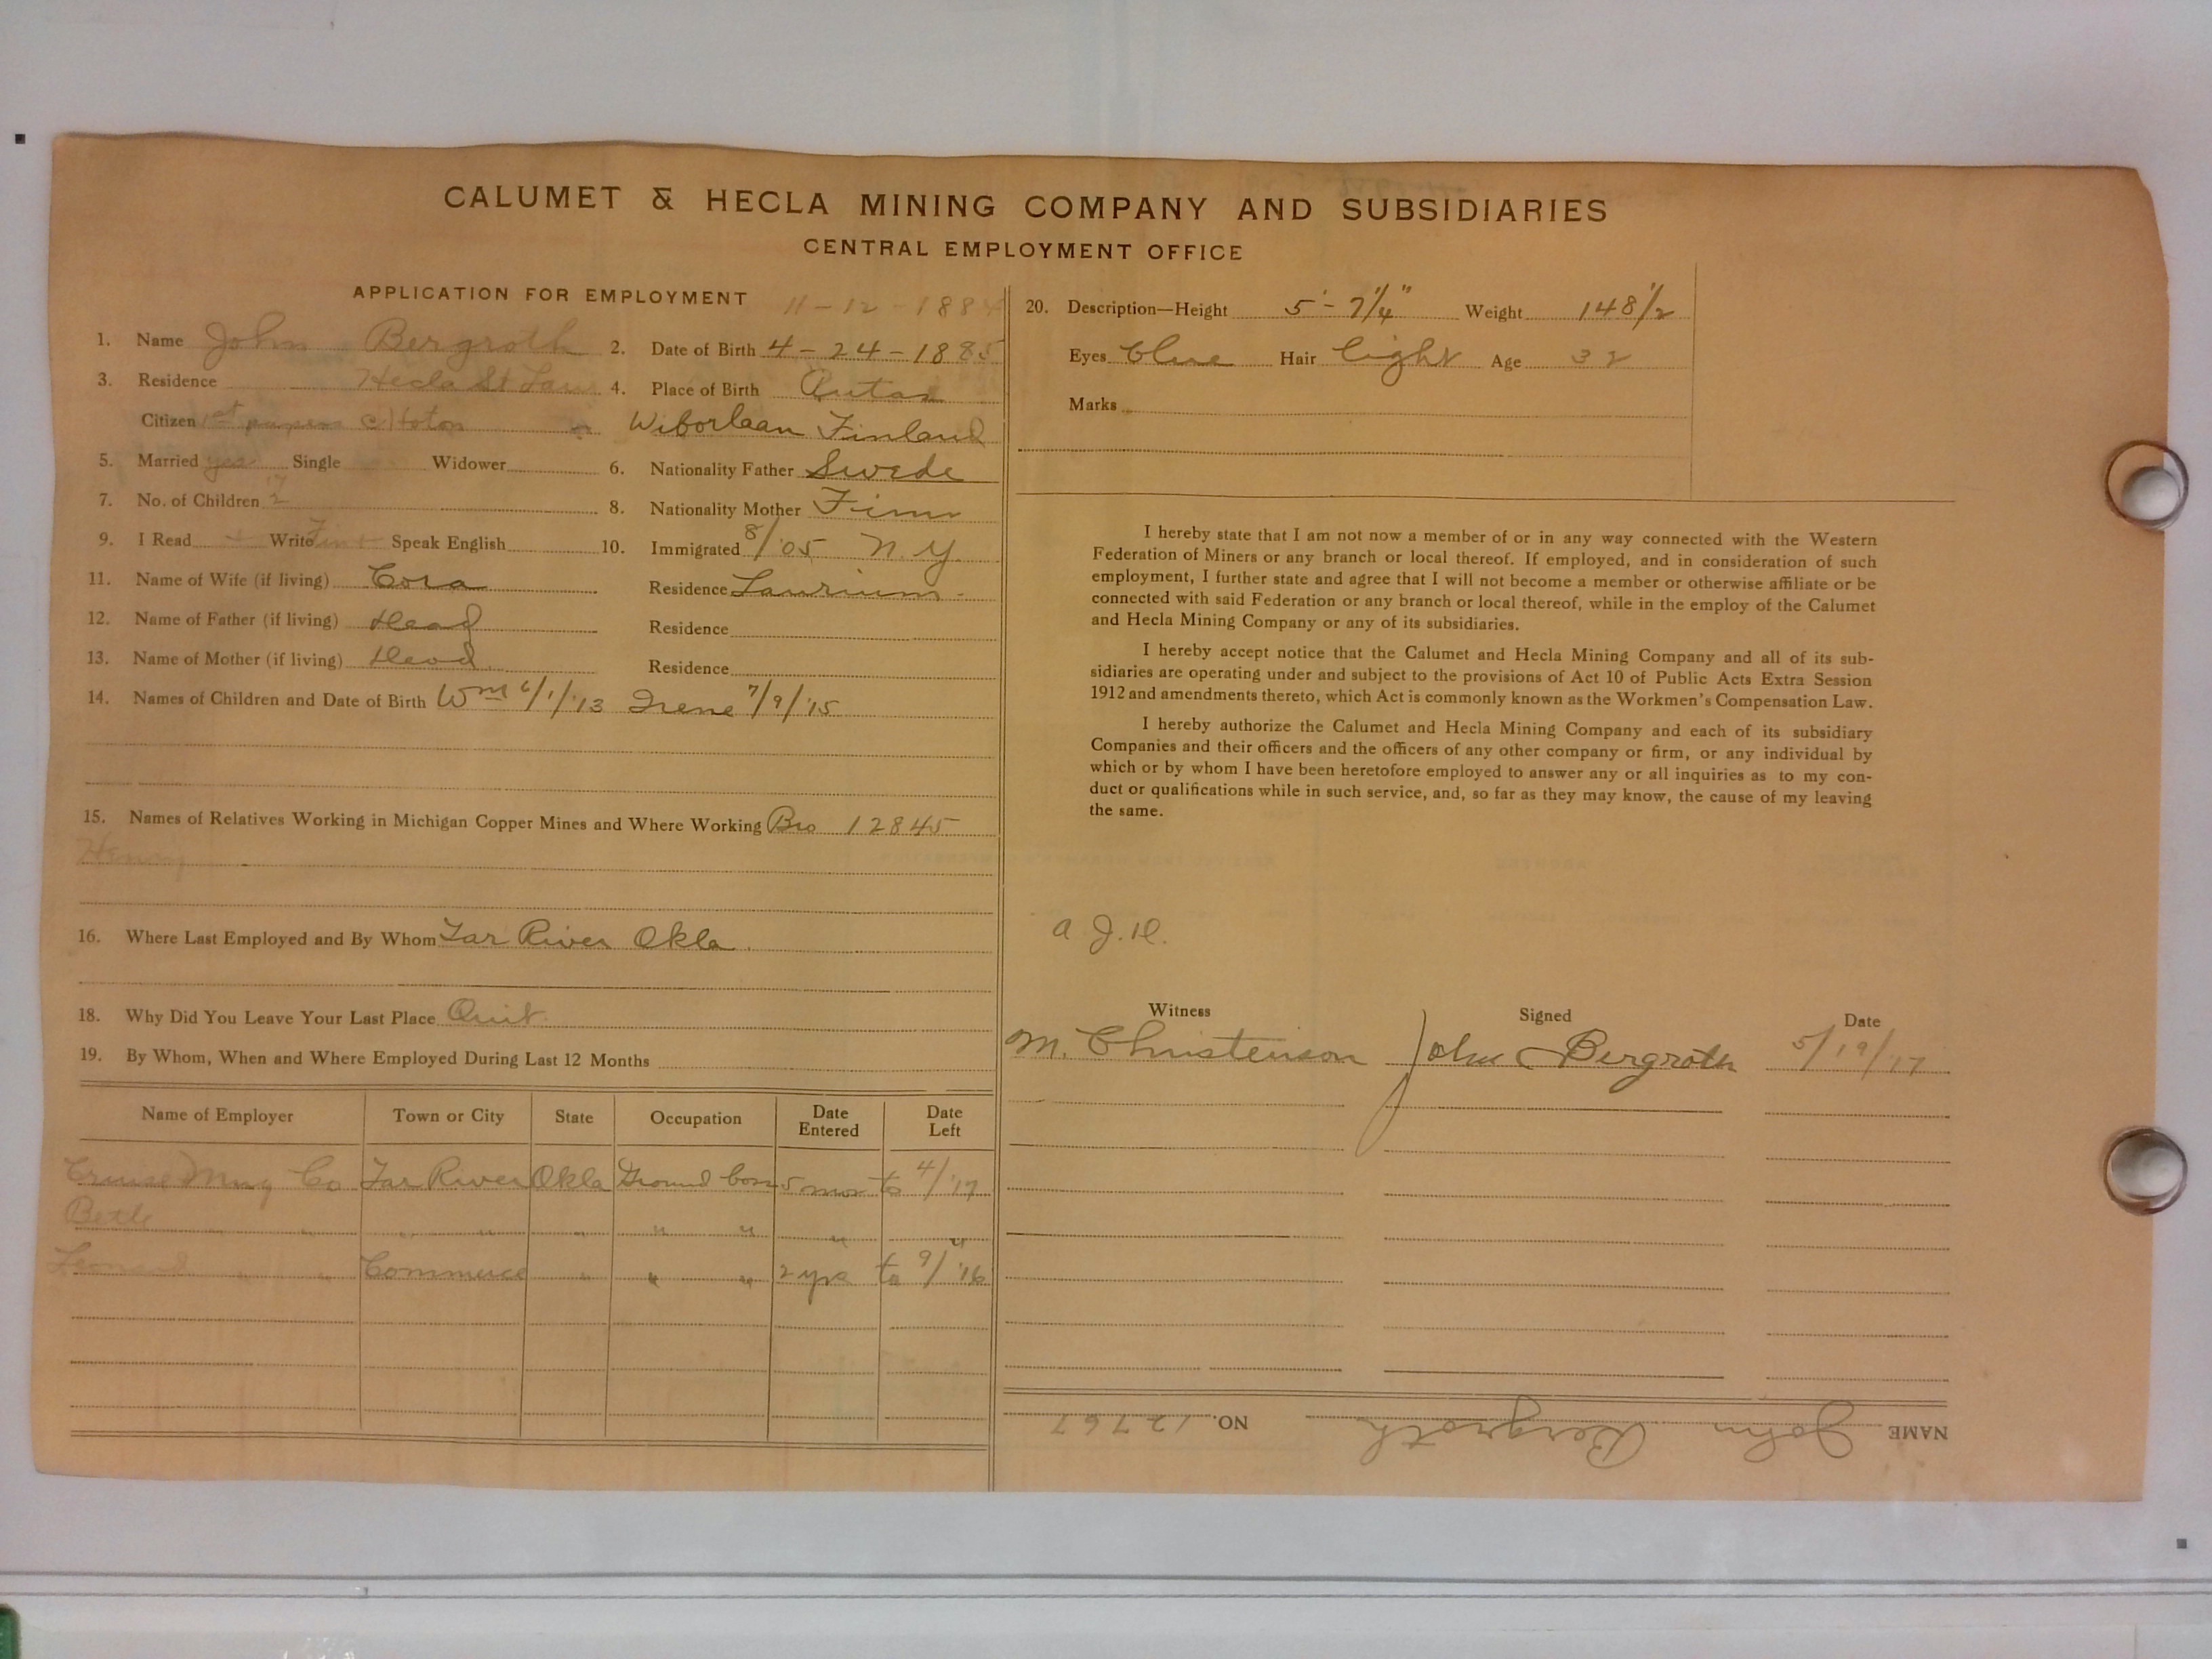 CALUMET & HECLA MINING COMPANY AND SUBSIDIARIES
CENTRAL EMPLOYMENT OFFICE
APPLICATION FOR EMPLOYMENT
11-12-1884
1. Name John Bergroth 2. Date of Birth 4-24-1885
3. Residence Hecla St Laur 4. Place of Birth
Citizen 1st papers Hoton Wiborlaan Finland
5. Married yes Single Widower 6. Nationality Father Swede
7. No. of Children 2 8. Nationality Mother Finn
9. I Read Write Speak English 10. Immigrated 8/'05 N.Y
11. Name of Wife (if living) Cora Residence Laurium
12. Name of Father (if living) dead Residence
13. Name of Mother (if living) dead Residence
14. Names of Children and Date of Birth Wm 6/1/'13 Irene 7/9/'15
15. Names of Relatives Working in Michigan Copper Mines and Where Working Bro 12845
Henry
16. Where Last Employed and By Whom Tar River Okla.
18. Why Did You Leave Your Last Place Quit
19. By Whom, When and Where Employed During Last 12 Months
Name of Employer Town or City State Occupation Date Entered Date Left
Cruise Mng Co Tar River Okla Ground boss 5 mos to 4/'17
" " " " " " " " "
" " Commerce " " " 2 yrs to 9/'16
20. Description—Height 5'-7 1/4" Weight 148 1/2
Eyes blue Hair light Age 32
Marks
I hereby state that I am not now a member of or in any way connected with the Western
Federation of Miners or any branch or local thereof. If employed, and in consideration of such
employment, I further state and agree that I will not become a member or otherwise affiliate or be
connected with said Federation or any branch or local thereof, while in the employ of the Calumet
and Hecla Mining Company or any of its subsidiaries.
I hereby accept notice that the Calumet and Hecla Mining Company and all of its sub-
sidiaries are operating under and subject to the provisions of Act 10 of Public Acts Extra Session
1912 and amendments thereto, which Act is commonly known as the Workmen's Compensation Law.
I hereby authorize the Calumet and Hecla Mining Company and each of its subsidiary
Companies and their officers and the officers of any other company or firm, or any individual by
which or by whom I have been heretofore employed to answer any or all inquiries as to my con-
duct or qualifications while in such service, and, so far as they may know, the cause of my leaving
the same.
Witness Signed Date
M. Christenson John Bergroth 5/19/'17
NAME John Bergroth NO. 12767